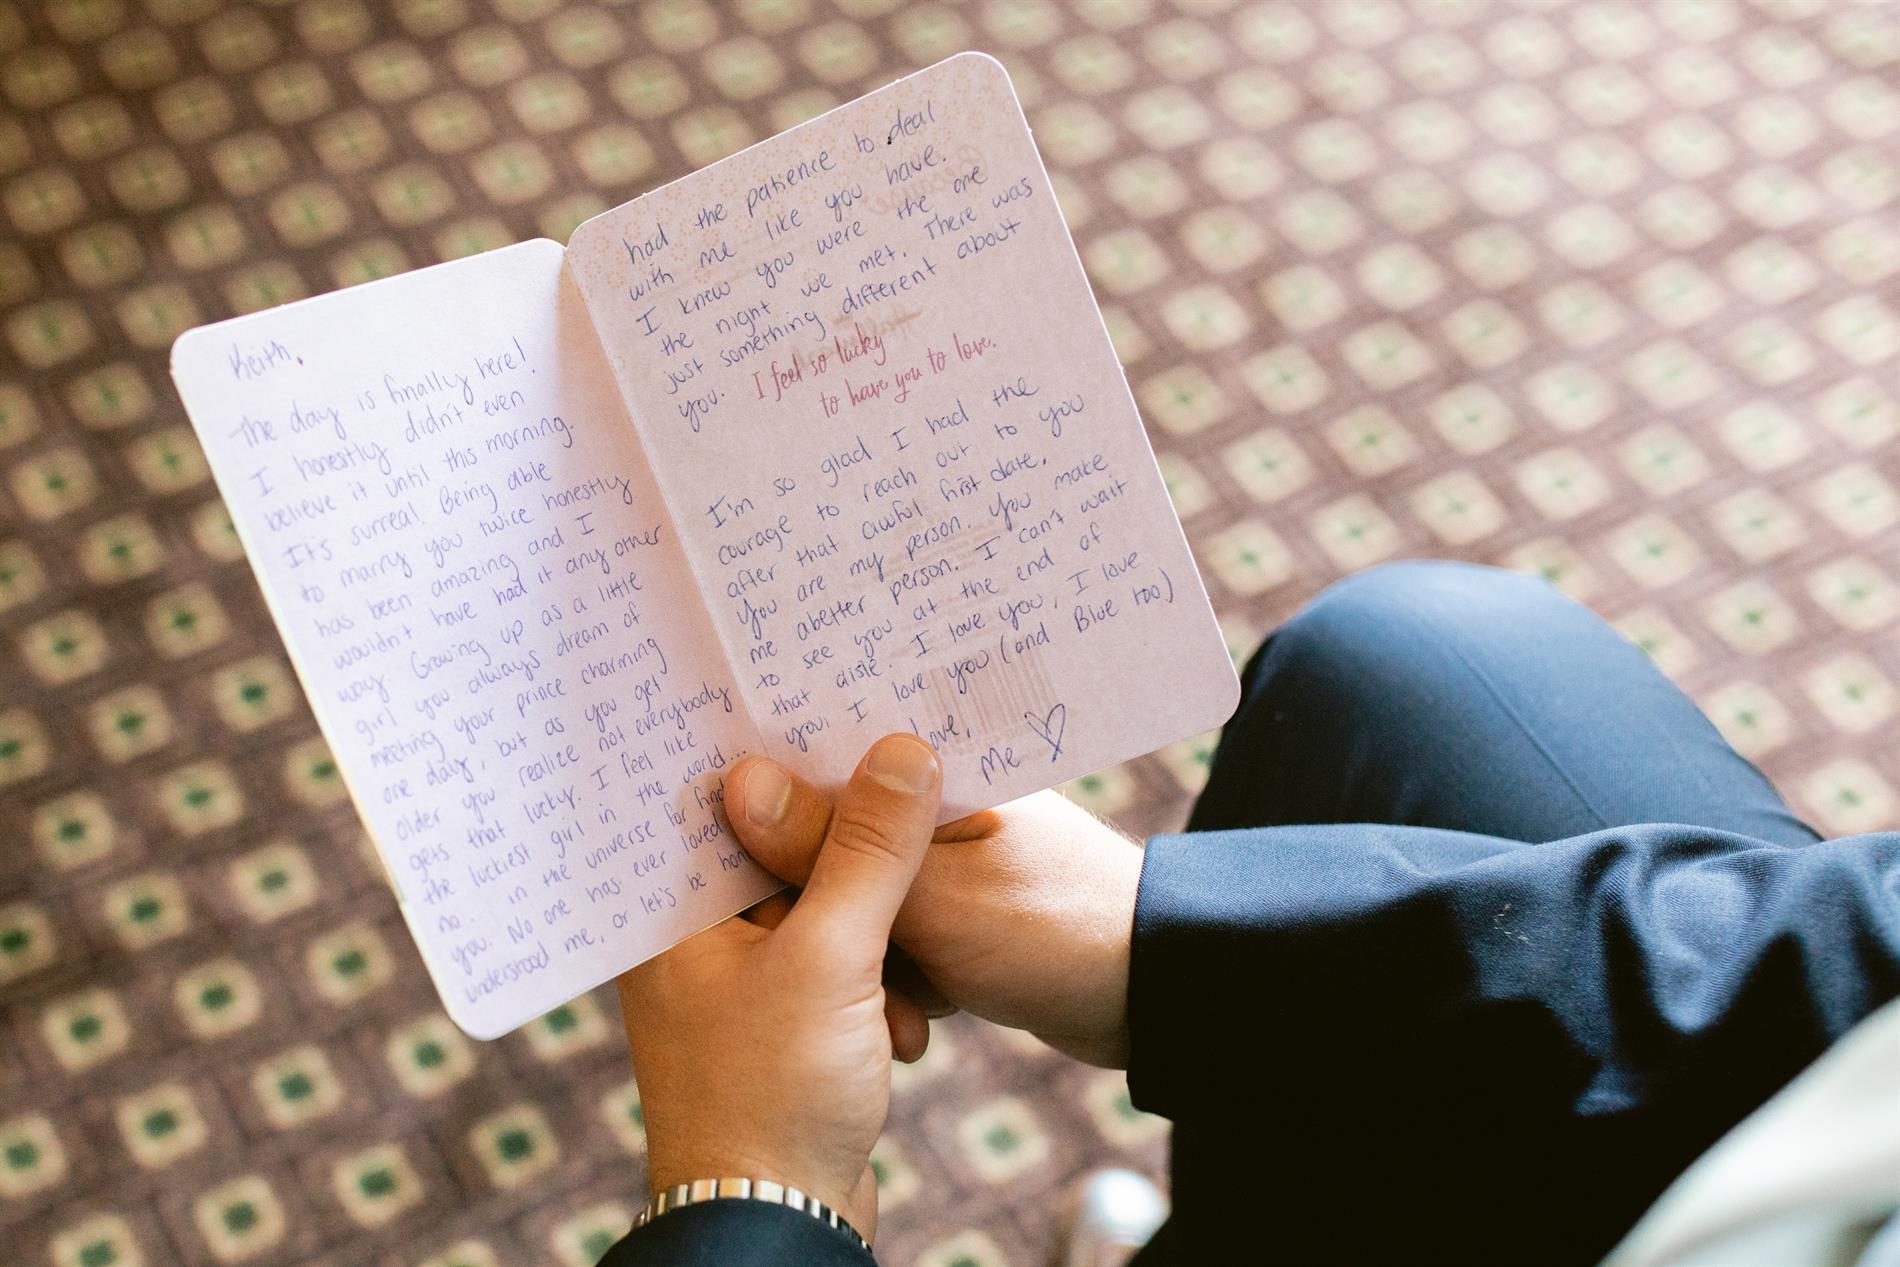 Keith,
The day is finally here!
I honestly didn't even
believe it until this morning.
It's surreal. Being able
to marry you twice honestly
has been amazing and I
wouldn't have had it any other
way. Growing up as a little
girl you always dream of
meeting your prince charming
one day, but as you get
older you realize not everybody
gets that lucky. I feel like
the luckiest girl in the world...
no.. in the universe for find
you. No one has ever loved
understood me, or let's be hon
had the patience to deal
with me like you have.
I knew you were the one
the night we met. There was
just something different about
you.
I feel so lucky
to have you to love.
I'm so glad I had the
courage to reach out to you
after that awful first date.
You are my person. You make
me abetter person. I can't wait
to see you at the end of
that aisle. I love you, I love
you, I love you (and Blue too)
Love,
Me